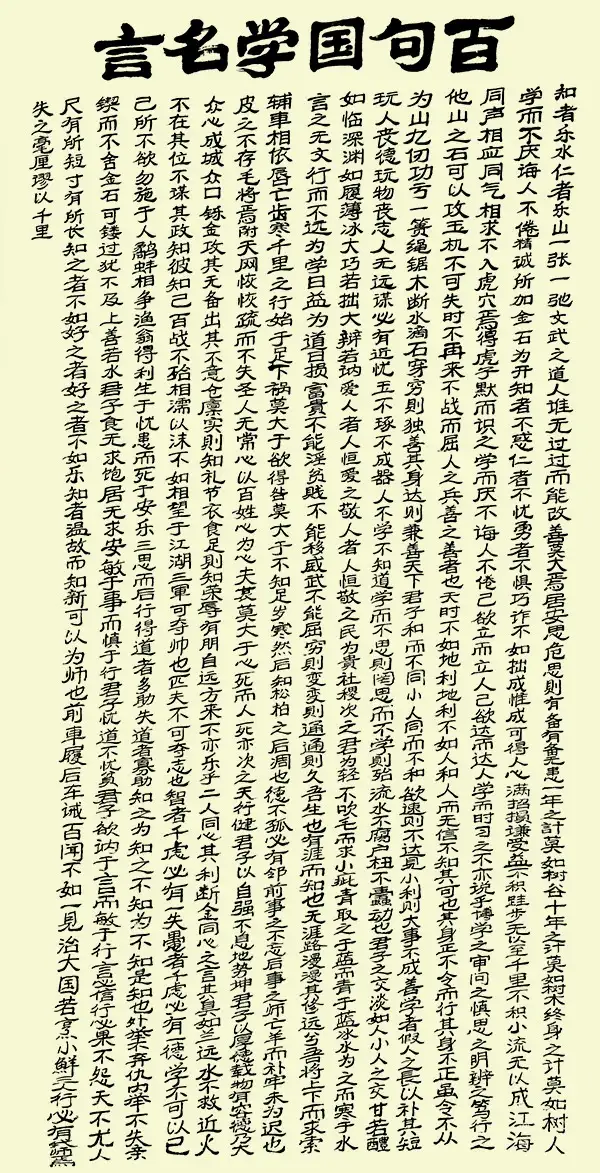 百句国学名言
知者乐水仁者乐山一张一弛文武之道人谁无过过而能改善莫大焉居安思危思则有备有备无患一年之计莫如树谷十年之计莫如树木终身之计莫如树人
学而不厌诲人不倦精诚所加金石为开知者不惑仁者不忧勇者不惧巧诈不如拙诚惟诚可得人心满招损谦受益不积跬步无以至千里不积小流无以成江海
同声相应同气相求不入虎穴焉得虎子默而识之学而不厌诲人不倦己欲立而立人己欲达而达人学而时习之不亦说乎博学之审问之慎思之明辨之笃行之
他山之石可以攻玉机不可失时不再来不战而屈人之兵善之善者也天时不如地利地利不如人和人而无信不知其可也其身正不令而行其身不正虽令不从
为山九仞功亏一篑绳锯木断水滴石穿穷则独善其身达则兼善天下君子和而不同小人同而不和欲速则不达见小利则大事不成善学者假人之长以补其短
玩人丧德玩物丧志人无远谋必有近忧玉不琢不成器人不学不知道学而不思则罔思而不学则殆流水不腐户枢不蠹动也君子之交淡如人小人之交甘若醴
如临深渊如履薄冰大巧若拙大辨若讷爱人者人恒爱之敬人者人恒敬之民为贵社稷次之君为轻不吹毛而求小疵青取之于蓝而青于蓝冰水为之而寒于水
言之无文行而不远为学日益为道日损富贵不能淫贫贱不能移威武不能屈穷则变变则通通则久吾生也有涯而知也无涯路漫漫其修远兮吾将上下而求索
辅车相依唇亡齿寒千里之行始于足下祸莫大于欲得咎莫大于不知足岁寒然后知松柏之后凋也德不孤必有邻前事之不忘后事之师亡羊而补牢未为迟也
皮之不存毛将焉附天网恢恢疏而不失圣人无常心以百姓心为心夫哀莫大于心死而人死亦次之天行健君子以自强不息地势坤君子以厚德载物有容德乃大
众心成城众口铄金攻其无备出其不意仓廪实则知礼节衣食足则知荣辱有朋自远方来不亦乐乎二人同心其利断金同心之言其臭如兰远水不救近火
不在其位不谋其政知彼知己百战不殆相濡以沫不如相望于江湖三军可夺帅也匹夫不可夺志也智者千虑必有一失愚者千虑必有一德学不可以已
己所不欲勿施于人鹬蚌相争渔翁得利生于忧患而死于安乐三思而后行得道者多助失道者寡助知之为知之不知为不知是知也外举不弃仇内举不失亲
锲而不舍金石可镂过犹不及上善若水君子食无求饱居无求安敏于事而慎于行君子忧道不忧贫君子欲讷于言而敏于行言必信行必果不怨天不尤人
尺有所短寸有所长知之者不如好之者好之者不如乐知者温故而知新可以为师也前車覆后车诫百闻不如一见治大国若烹小鲜三人行必有我师焉
失之毫厘谬以千里